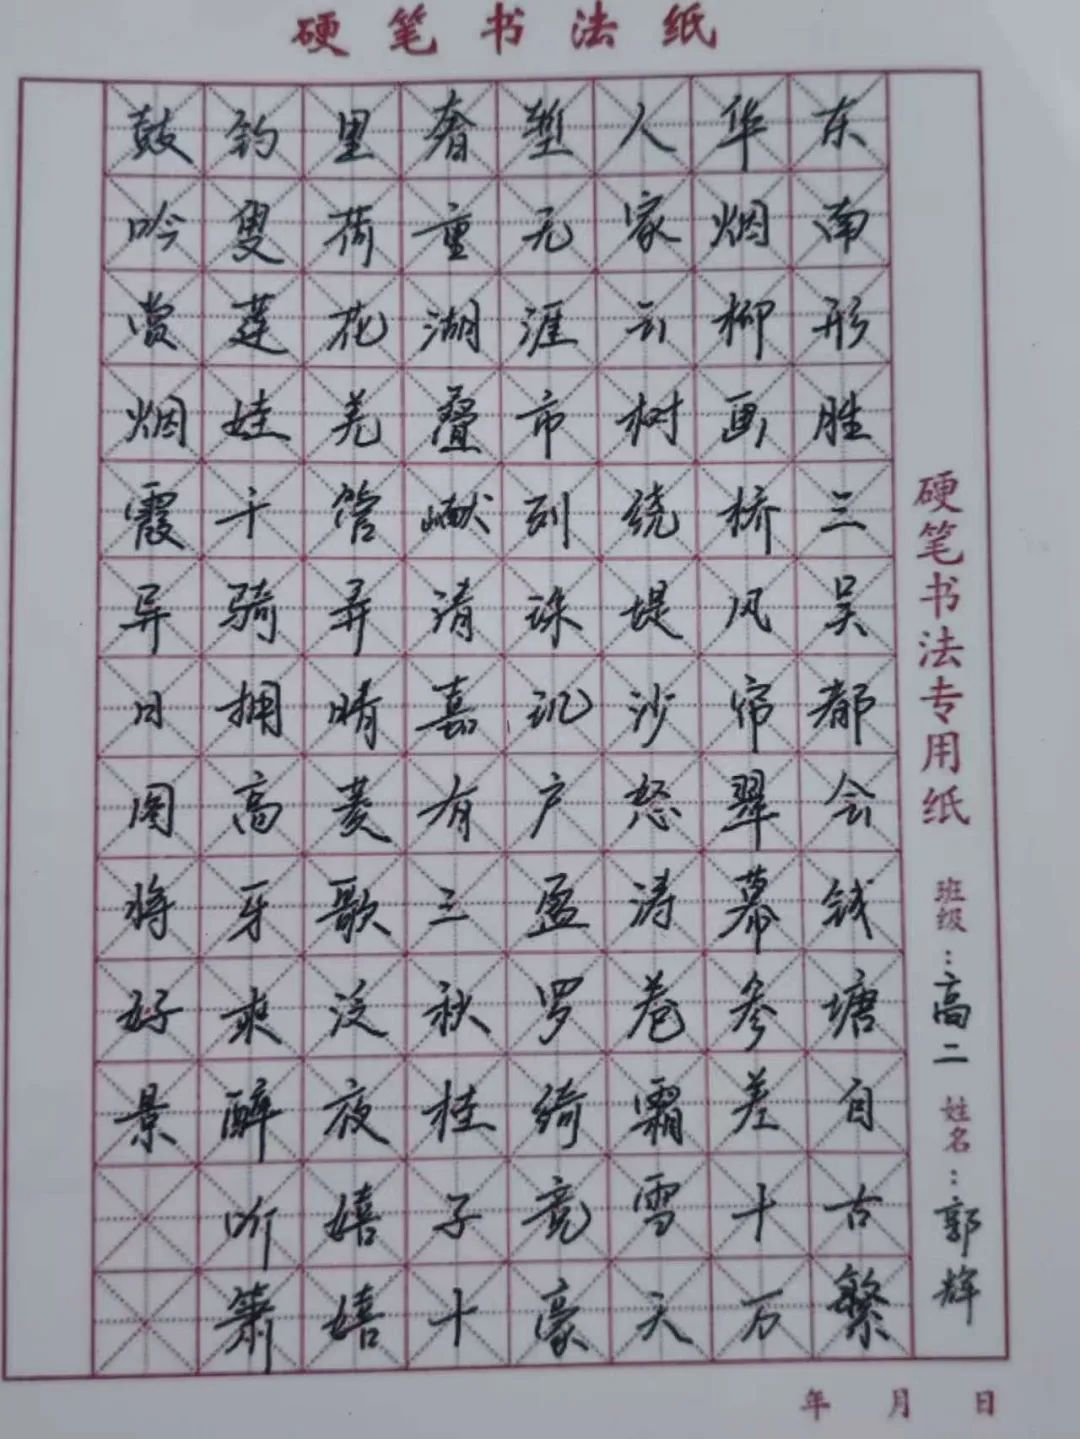 硬笔书法纸
东南形胜三吴都会钱塘自古繁
华烟柳画桥风帘翠幕参差十万
人家云树绕堤沙怒涛卷霜雪天
堑无涯市列珠玑户盈罗绮竞豪
奢重湖叠巘清嘉有三秋桂子十
里荷花羌管弄晴菱歌泛夜嬉嬉
钓叟莲娃千骑拥高牙乘醉听箫
鼓吟赏烟霞异日图将好景
硬笔书法专用纸 班级：高二 姓名：郭辉
年 月 日